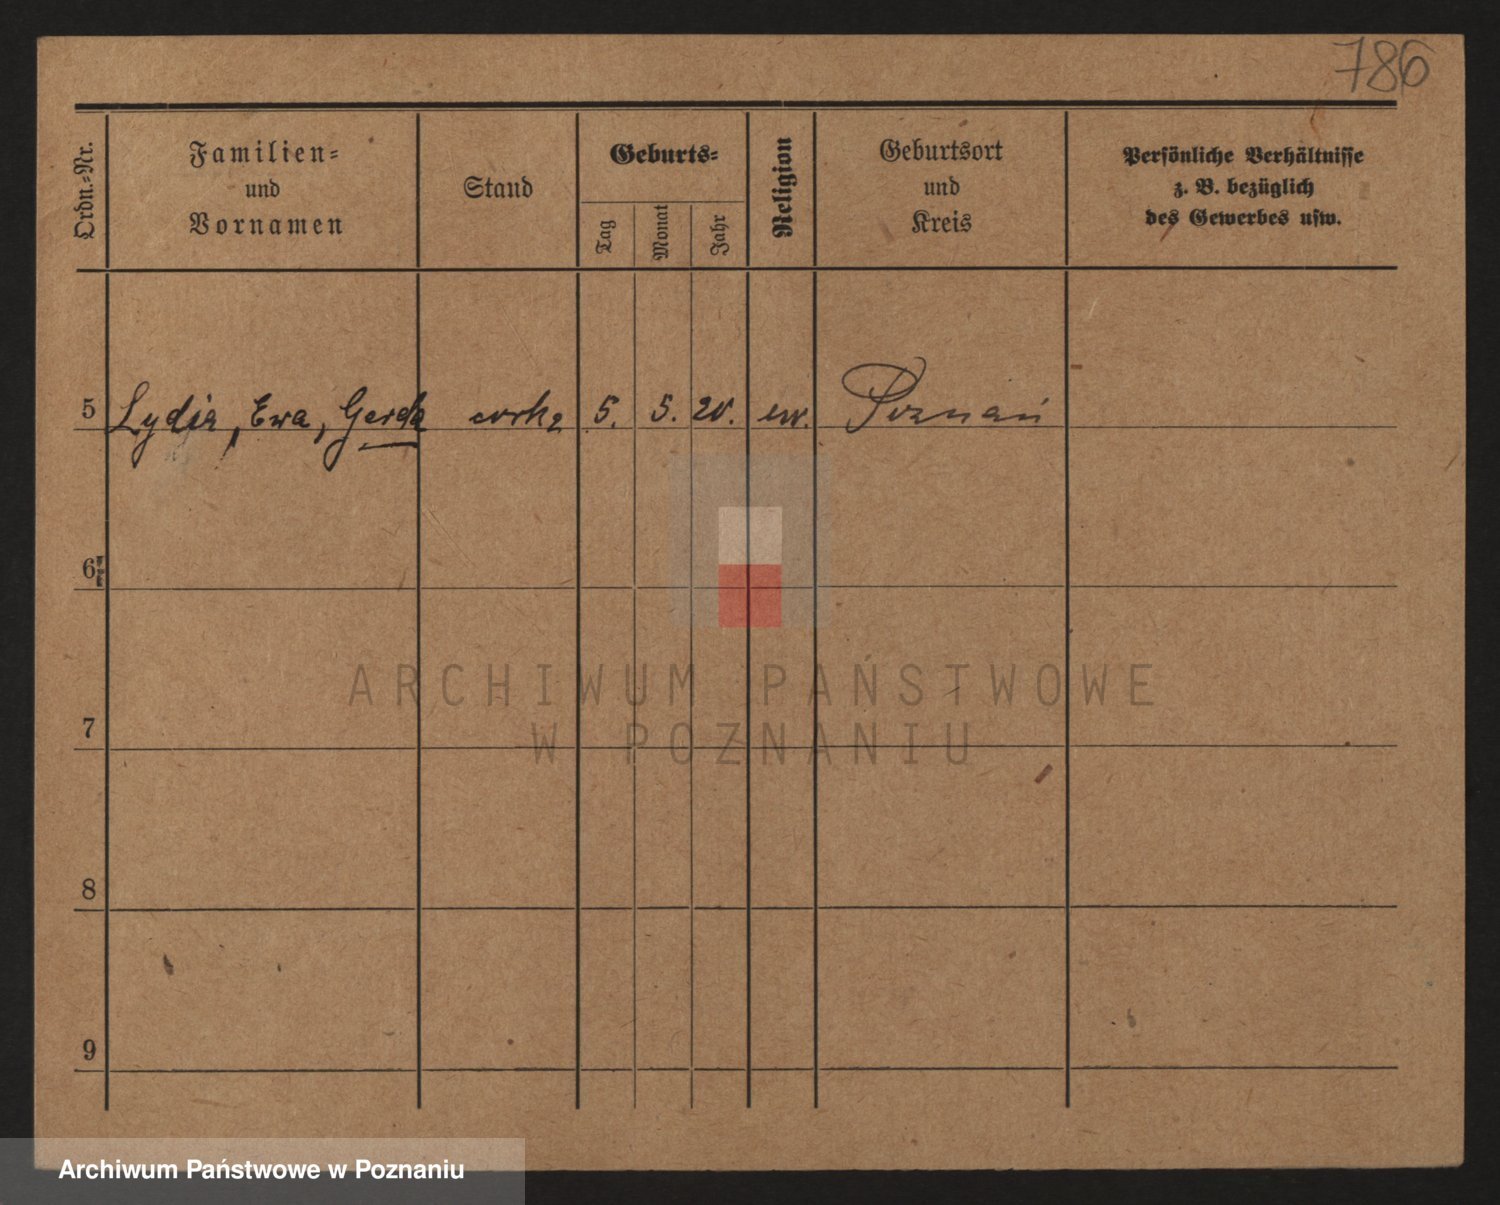 786
Ordn.-Nr.
Familien-
und
Vornamen
Stand
Geburts-
Tag
Monat
Jahr
Religion
Geburtsort
und
Kreis
Persönliche Verhältnisse
z. B. bezüglich
des Gewerbes usw.
5 Lydia, Ewa, Gerda corka 5. 5. 20. ew. Poznań
6
7
8
9
ARCHIWUM PAŃSTWOWE
W POZNANIU
Archiwum Państwowe w Poznaniu